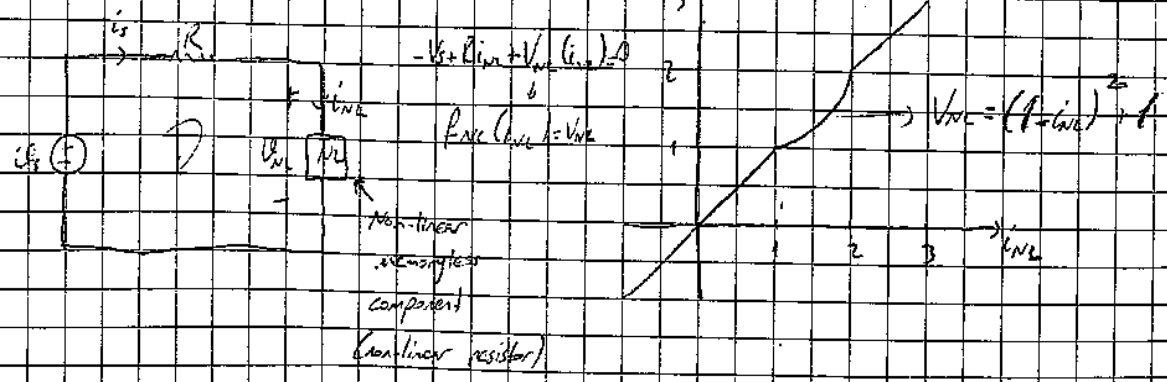 i_s
R
-V_s + R i_NL + V_NL (i_NL) = 0
+
i_NL
↓
f_NL (i_NL) = V_NL
v_s
v_NL
NL
-
Non-linear
memoryless
component
(non-linear resistor)
3
2
1
→ V_NL = (1 - i_NL)² + 1
1
2
3
i_NL